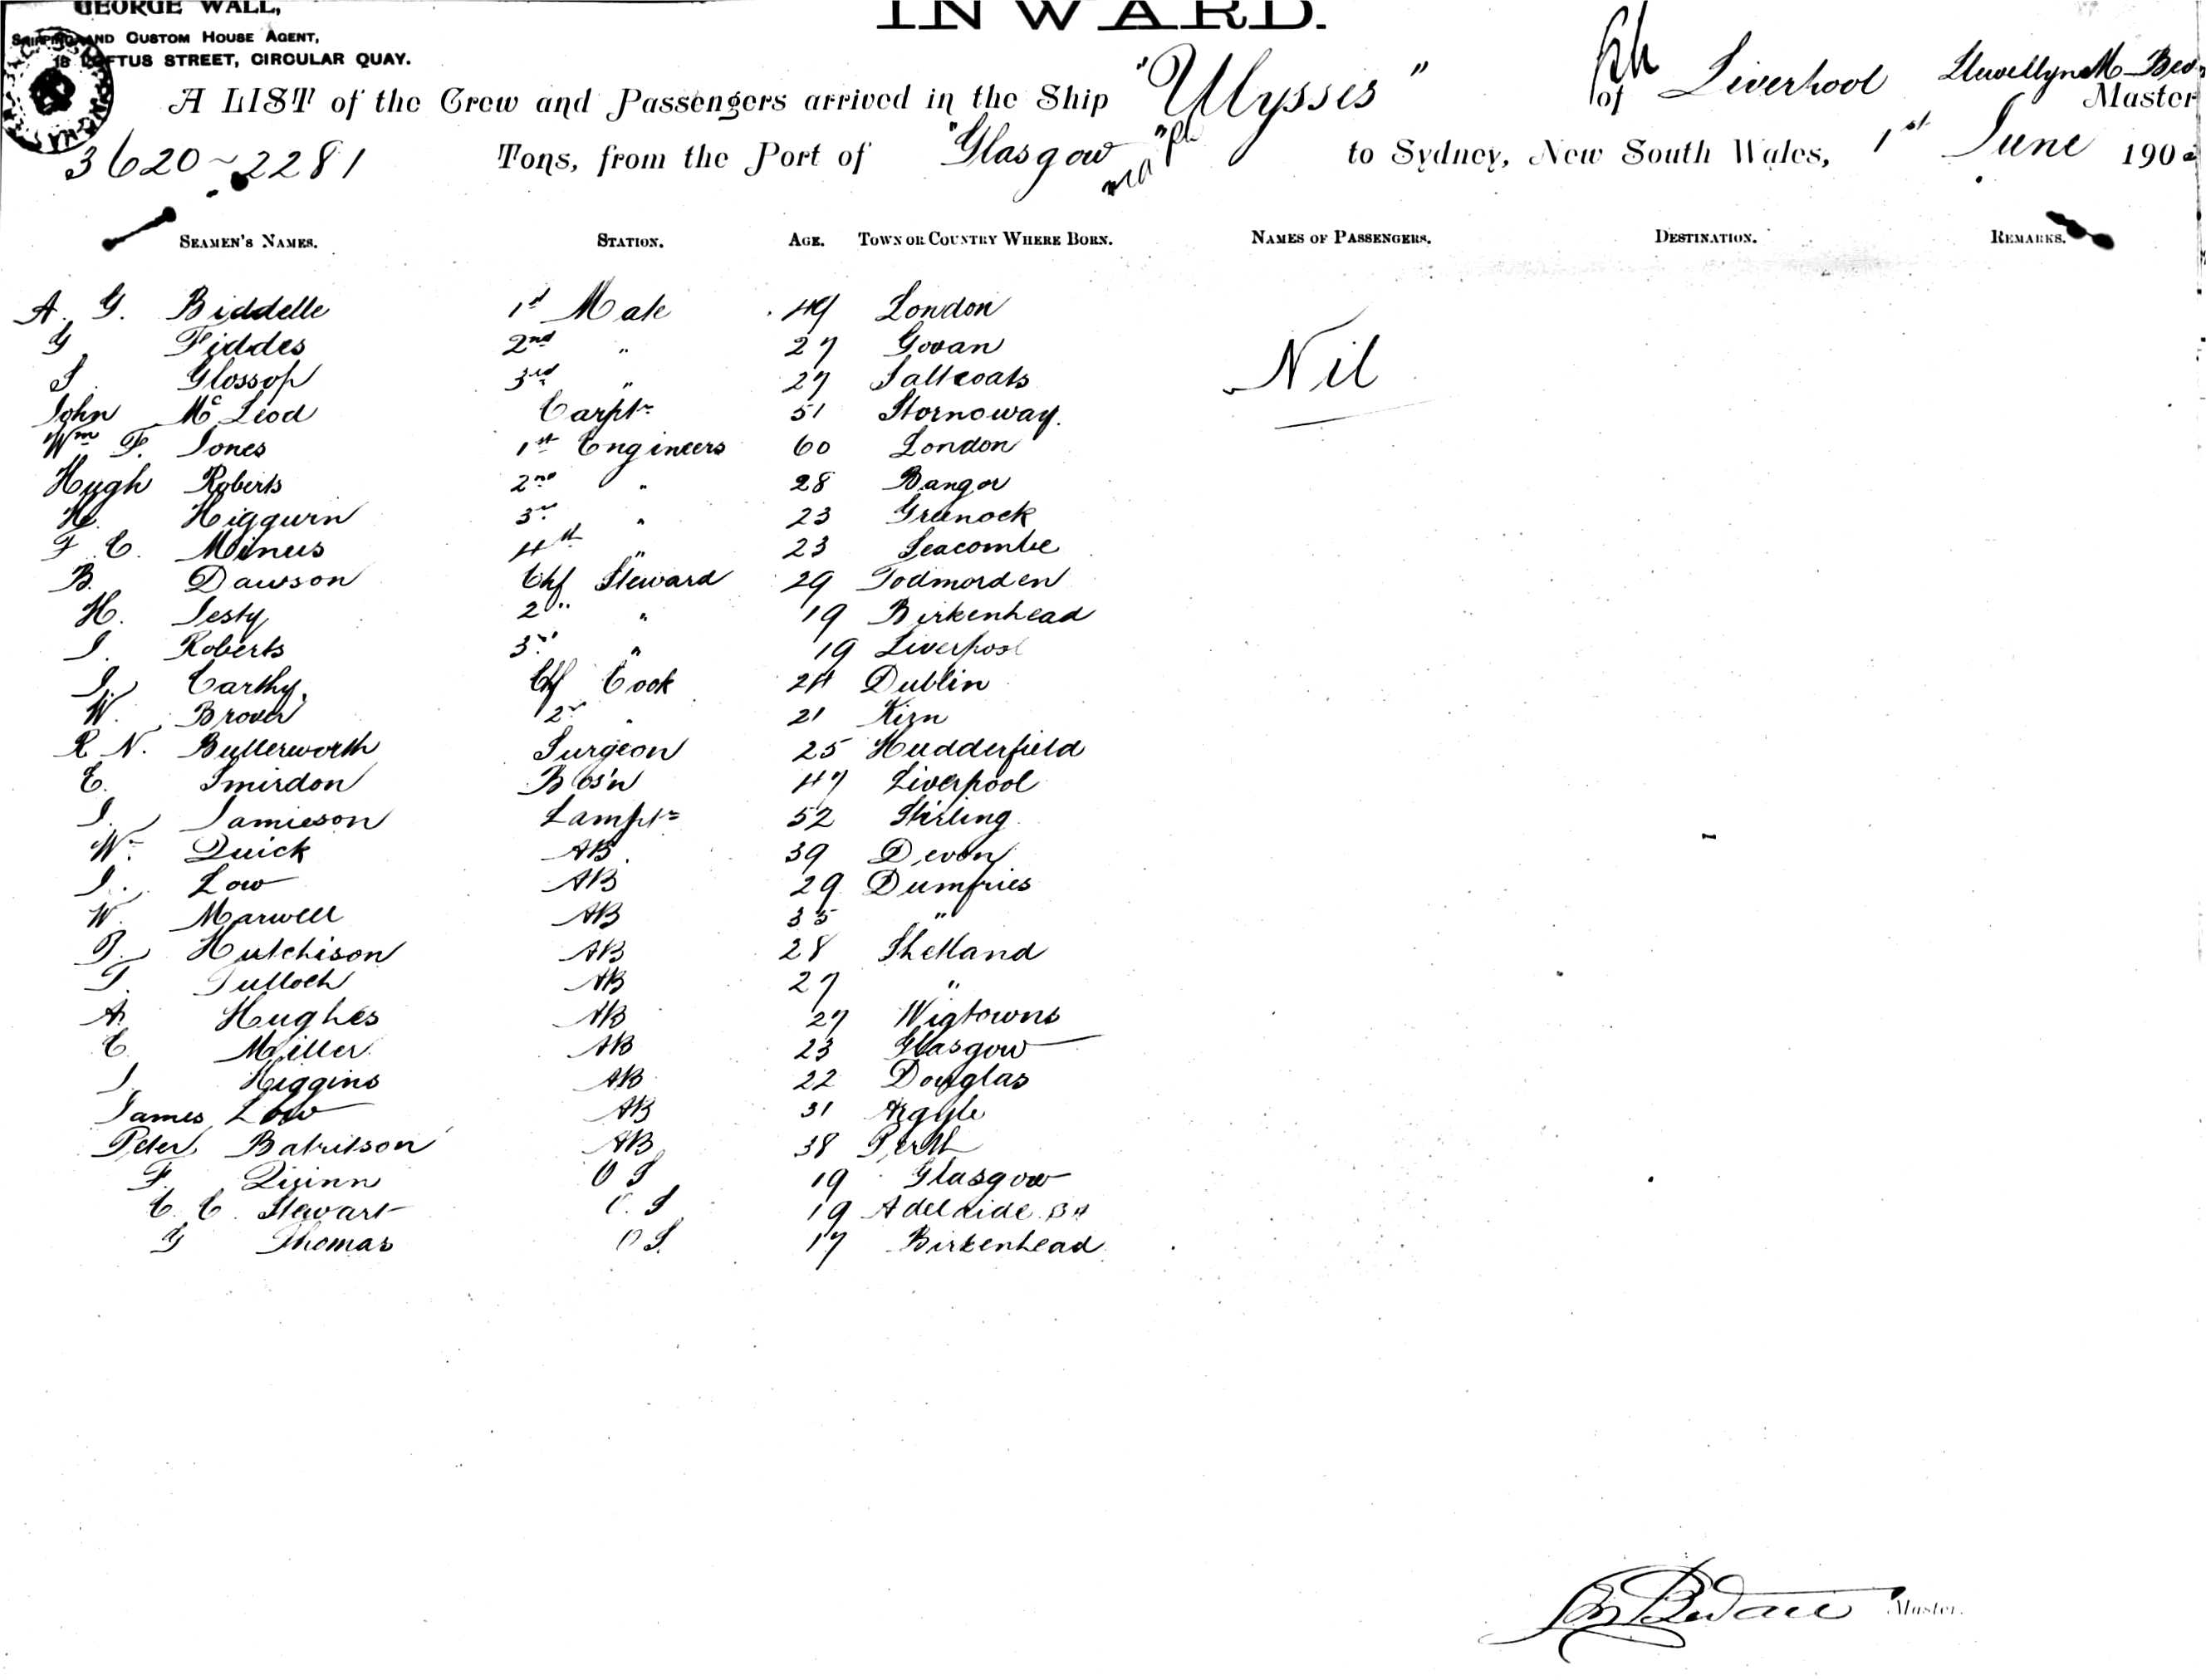 GEORGE WALL,
SHIPPING AND CUSTOM HOUSE AGENT,
LOFTUS STREET, CIRCULAR QUAY.
INWARD.
A LIST of the Crew and Passengers arrived in the Ship "Ulysses" of Liverpool Llewellyn Master
3620~2281 Tons, from the Port of "Glasgow to Sydney, New South Wales, 1st June 190
SEAMEN'S NAMES. STATION. AGE. TOWN OR COUNTRY WHERE BORN. NAMES OF PASSENGERS. DESTINATION. REMARKS.
A. G. Biddelle 1st Mate 49 London
G Fiddes 2nd " 27 Govan Nil
S. Glossop 3rd " 27 Saltcoats
John McLeod Carptr 51 Stornoway.
Wm F. Jones 1st Engineers 60 London
Hugh Roberts 2nd " 28 Bangor
H. Higgurn 3rd " 23 Greenock
F C. Minus 4th " 23 Seacombe
B. Dawson Chf Steward 29 Todmorden
H. Jesty 2nd " 19 Birkenhead
J. Roberts 3rd " 19 Liverpool
J. Carthy. Chf Cook 24 Dublin
W. 2nd " 21 Kirn
R N. Butterworth Surgeon 25 Hudderfield
E. Smirdon Bos'n 47 Liverpool
J. Jamieson Lamptr 52 Stirling
Wm Quick AB. 39 Devon
J. Low AB 29 Dumfries
W. Maxwell AB 35 "
Hutchison AB 28 Shetland
T. Tulloch AB 27 "
A Hughes AB 27 Wigtowns
C Miller AB 23 Glasgow
J. Higgins AB 22 Douglas
James Low AB 31 Argyle
Peter AB 38 Perth
F. Quinn O S 19 Glasgow
C. C. Stewart O. S 19 Adelaide
G Thomas O S. 17 Birkenhead
Master.